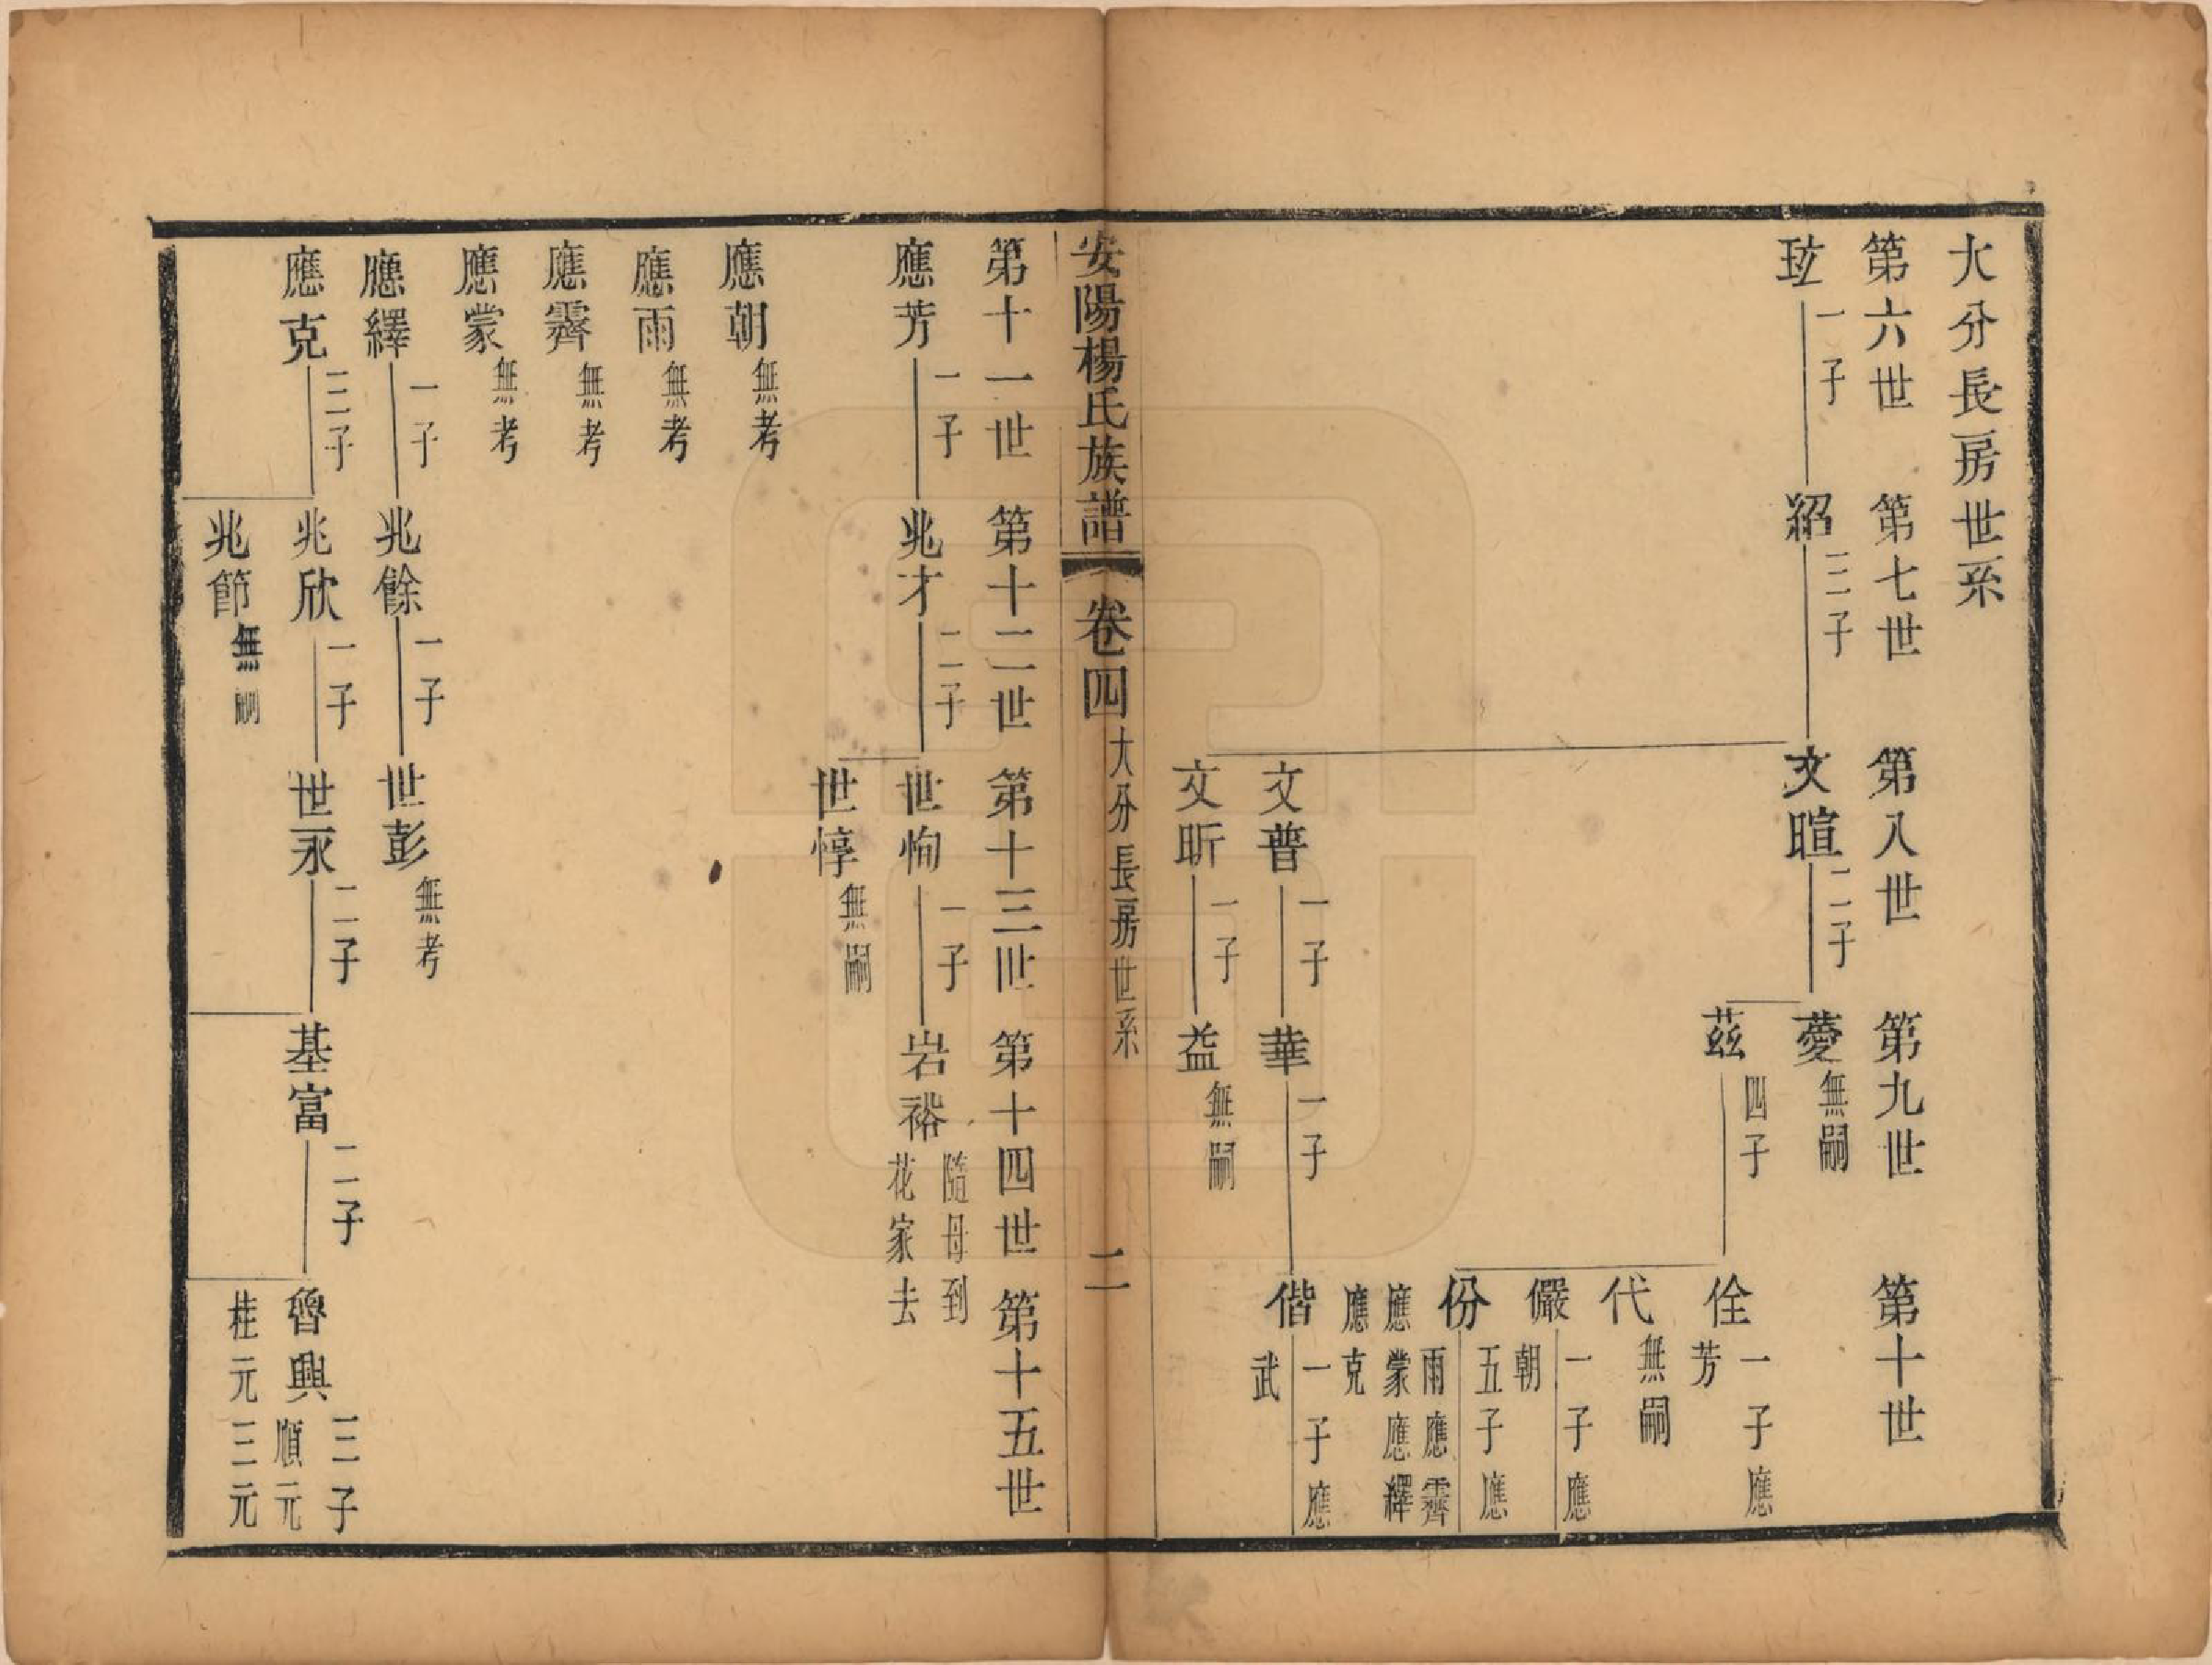 大分長房世系
第六世 第七世 第八世 第九世 第十世
玹 一子 紹 三子 文暄 二子 薆 無嗣
茲 四子 佺 一子應芳
代 無嗣
儼 一子應朝
份 五子應雨應霽應蒙應繹應克
文普 一子 華 一子 偕 一子應武
文昕 一子 益 無嗣
安陽楊氏族譜 卷四 大分長房世系 二
第十一世 第十二世 第十三世 第十四世 第十五世
應芳 一子 兆才 二子 世恂 一子 岩裕 隨母到花家去
世惇 無嗣
應朝 無考
應雨 無考
應霽 無考
應蒙 無考
應繹 一子 兆餘 一子 世彭 無考
應克 三子 兆欣 一子 世永 二子 基富 二子 魯興 三子順元桂元三元
兆節 無嗣